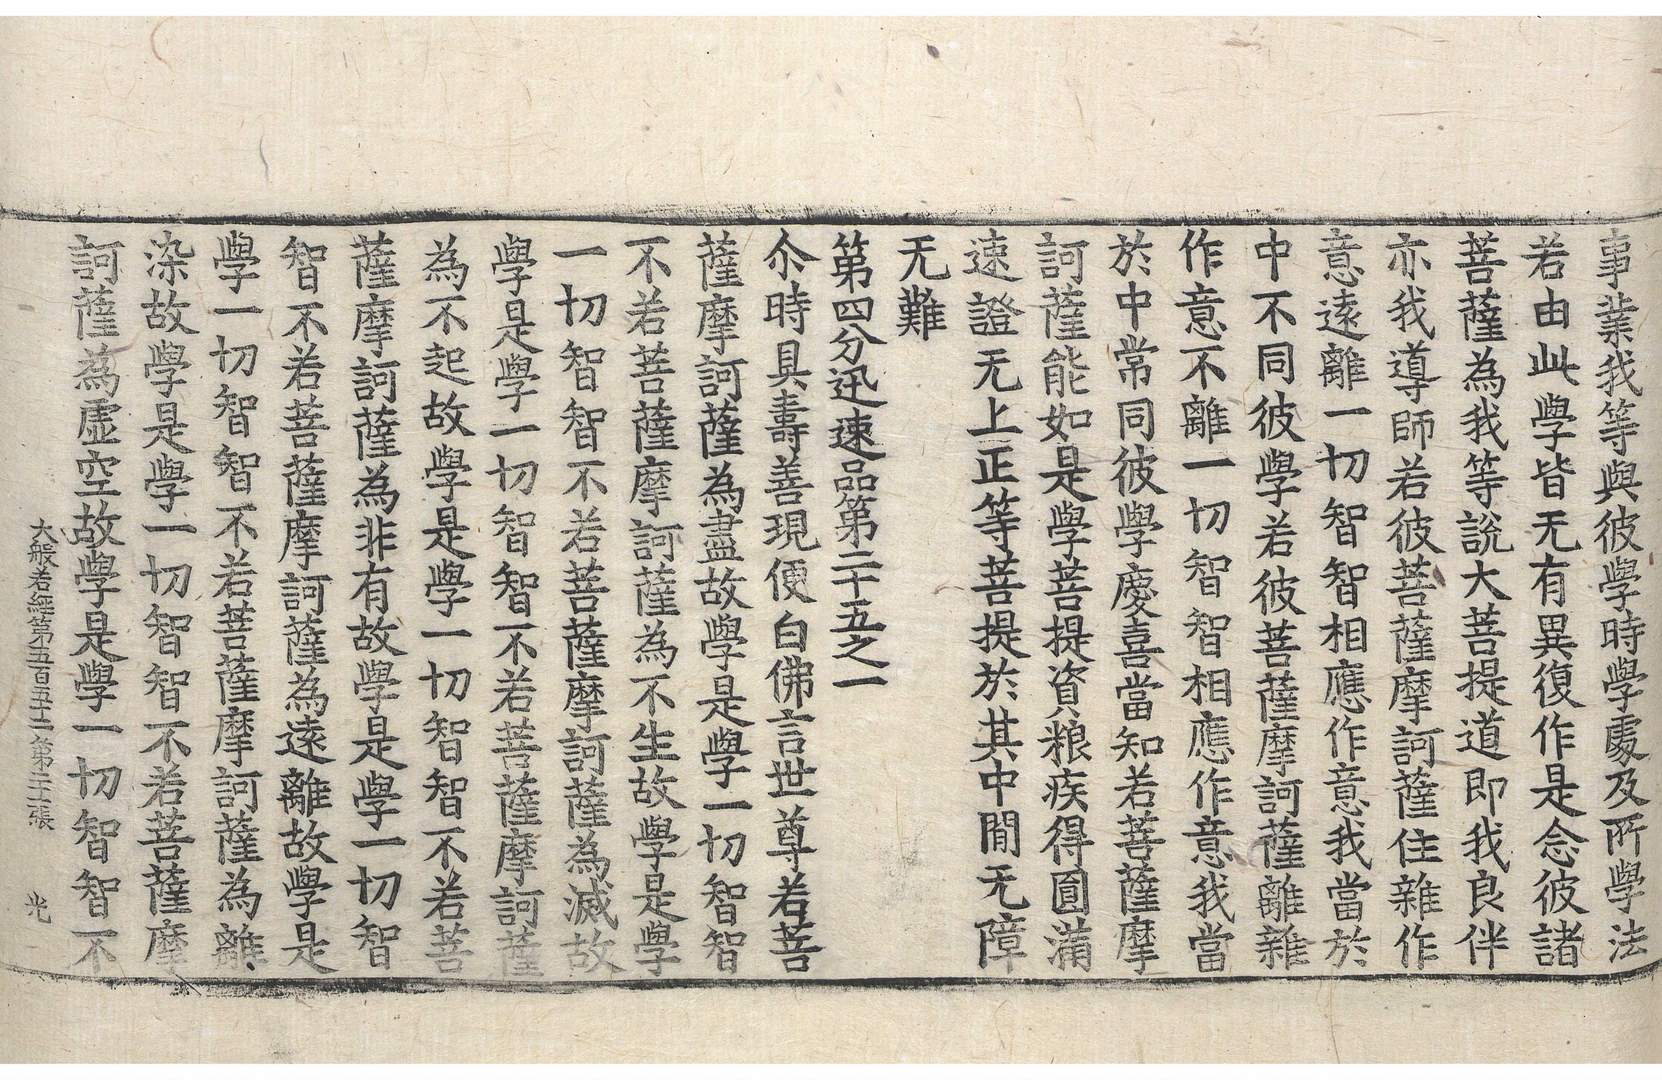 事業我等與彼學時學處及所學法
若由此學皆无有異復作是念彼諸
菩薩為我等說大菩提道即我良伴
亦我導師若彼菩薩摩訶薩住雜作
意遠離一切智智相應作意我當於
中不同彼學若彼菩薩摩訶薩離雜
作意不離一切智智相應作意我當
於中常同彼學慶喜當知若菩薩摩
訶薩能如是學菩提資粮疾得圓滿
速證无上正等菩提於其中閒无障
无難
第四分迅速品第二十五之一
尒時具壽善現便白佛言世尊若菩
薩摩訶薩為盡故學是學一切智智
不若菩薩摩訶薩為不生故學是學
一切智智不若菩薩摩訶薩為滅故
學是學一切智智不若菩薩摩訶薩
為不起故學是學一切智智不若菩
薩摩訶薩為非有故學是學一切智
智不若菩薩摩訶薩為遠離故學是
學一切智智不若菩薩摩訶薩為離
染故學是學一切智智不若菩薩摩
訶薩為虛空故學是學一切智智不
大般若經第五百五十二 第二十二張 光